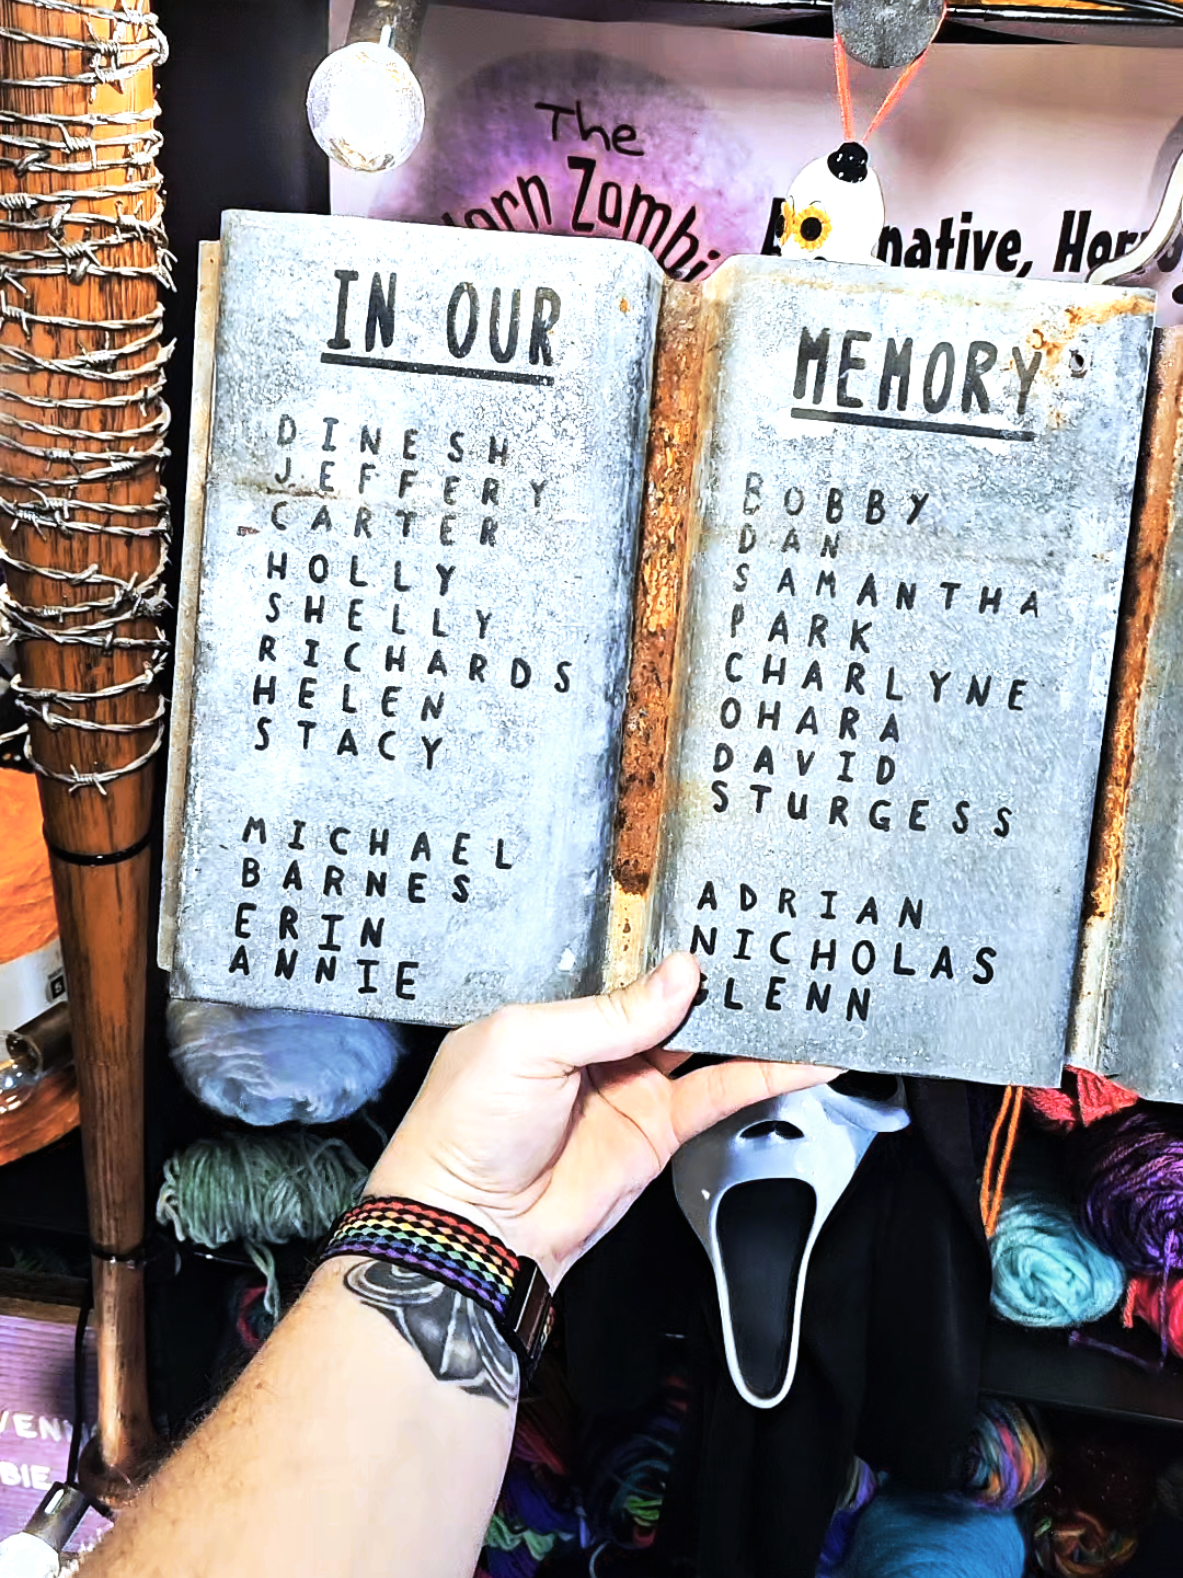 The
Zombi
Hor
IN OUR
DINESH
JEFFERY
CARTER
HOLLY
SHELLY
RICHARDS
HELEN
STACY
MICHAEL
BARNES
ERIN
ANNIE
MEMORY
BOBBY
DAN
SAMANTHA
PARK
CHARLYNE
OHARA
DAVID
STURGESS
ADRIAN
NICHOLAS
GLENN